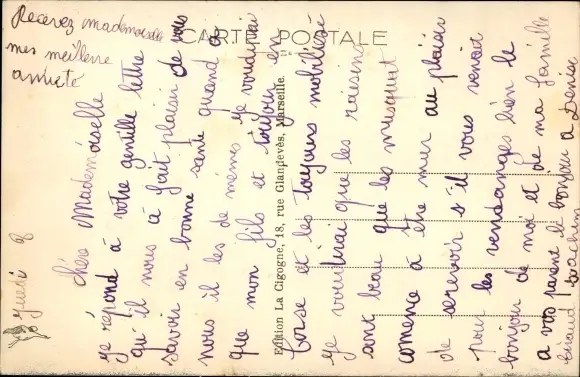 CARTE POSTALE
Edition La Cigogne, 18, rue Glandevès, Marseille.
Jeudi 8
Chère Mademoiselle
je répond à votre gentille lettre
qu'il nous à fait plaisir de vous
savoir en bonne santé quand à
nous il les de mèmes je voudrirai
que mon fils et toujour en
Corse et les toujours mobilisé
je voudrirai que les raisins
sont beau que les musquat
comence à être mur au plaisir
de serevoir s'il vous venait
pour les vendanges bien le
bonjour de moi et de ma famille
a vos parent le bonjour a Denise
Recevez mademoiselle
mes meillere
amitié